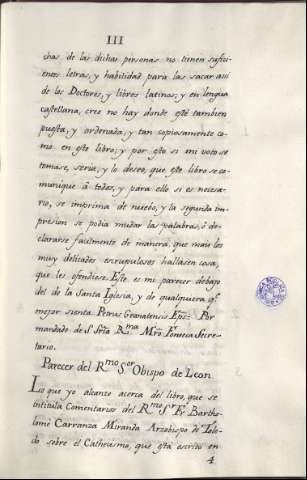 III
chas de las dichas personas no tienen sufici-
entes letras, y habilidad para las sacar assi
de los Doctores, y libros latinos; y en lengua
castellana, creo no hay donde esté tambien
puesta, y ordenada, y tan copiosamente co-
mo en este libro; y por esto si mi voto se
tomase, seria, y lo deseo, que este libro se co-
munique à todos, y para ello si es necesa-
rio, se imprima de nuevo, y la segunda im-
presion se podia mudar las palabras, ó de-
clararse facilmente de manera, que mas los
muy delicados escrupulosos hallasen cosa,
que les ofendiese. Este es mi parecer debajo
del de la Santa Iglesia, y de qualquiera q.e
mejor sienta. Petrus Granatensis Eps: Por
mandado de S. Sria R.ma Mrn Fonseca Secre-
tario.
Parecer del R.mo S.or Obispo de Leon.
Lo que yo alcanzo acerca del libro, que se
intitula Comentarios del R.mo S.or Fr. Bartho-
lomé Carranza Miranda Arzobispo de Tole-
do sobre el Cathecismo, que està escrito en
4